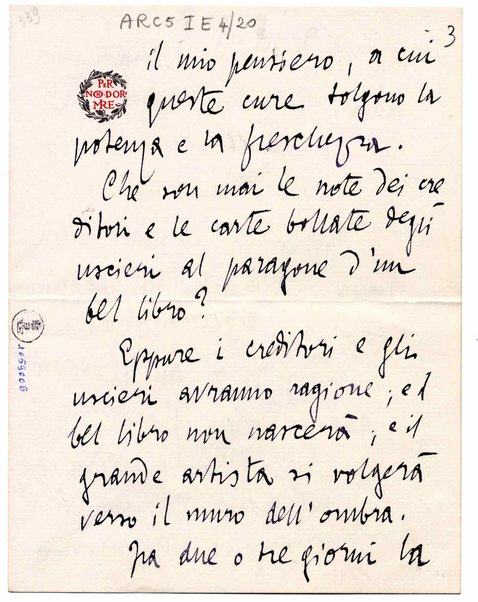 339
ARC5 I E 4/20
3
PER
NON DOR
MIRE
il mio pensiero, a cui
queste cure tolgono la
potenza e la freschezza.
Che son mai le note dei cre
ditori e le carte bollate degli
uscieri al paragone d'un
bel libro?
Eppure i creditori e gli
uscieri avranno ragione; e il
bel libro non nascerà; e il
grande artista si volgerà
verso il muro dell'ombra.
Fra due o tre giorni la